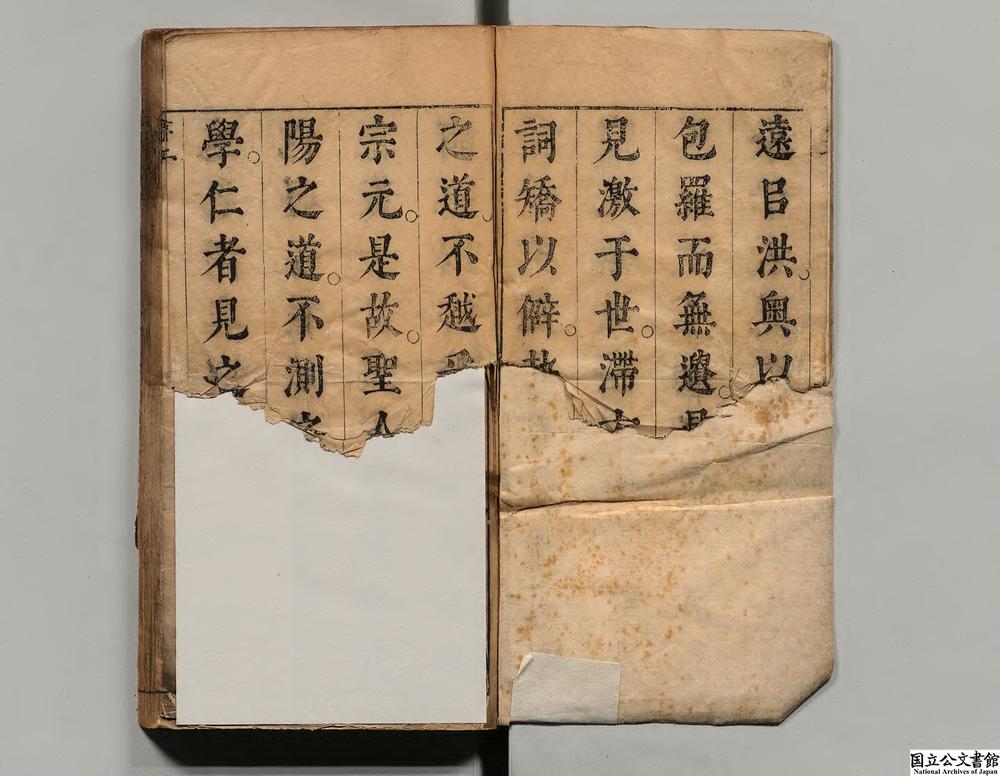 遠㠯洪。奧以
包羅而無邉。
見激于世。滯
詞矯以僻。
之道。不越
宗元。是故。聖人
陽之道。不測
學。仁者見之
国立公文書館
National Archives of Japan